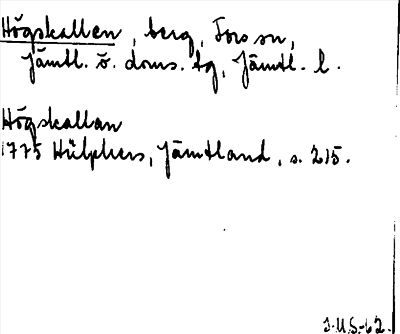 Högskallen, berg, Fors sn,
Jämtl. ö. doms. tg, Jämtl. l.
Högskallan
1775 Hülphers, Jämtland, s. 215.
J.U.S.-62.